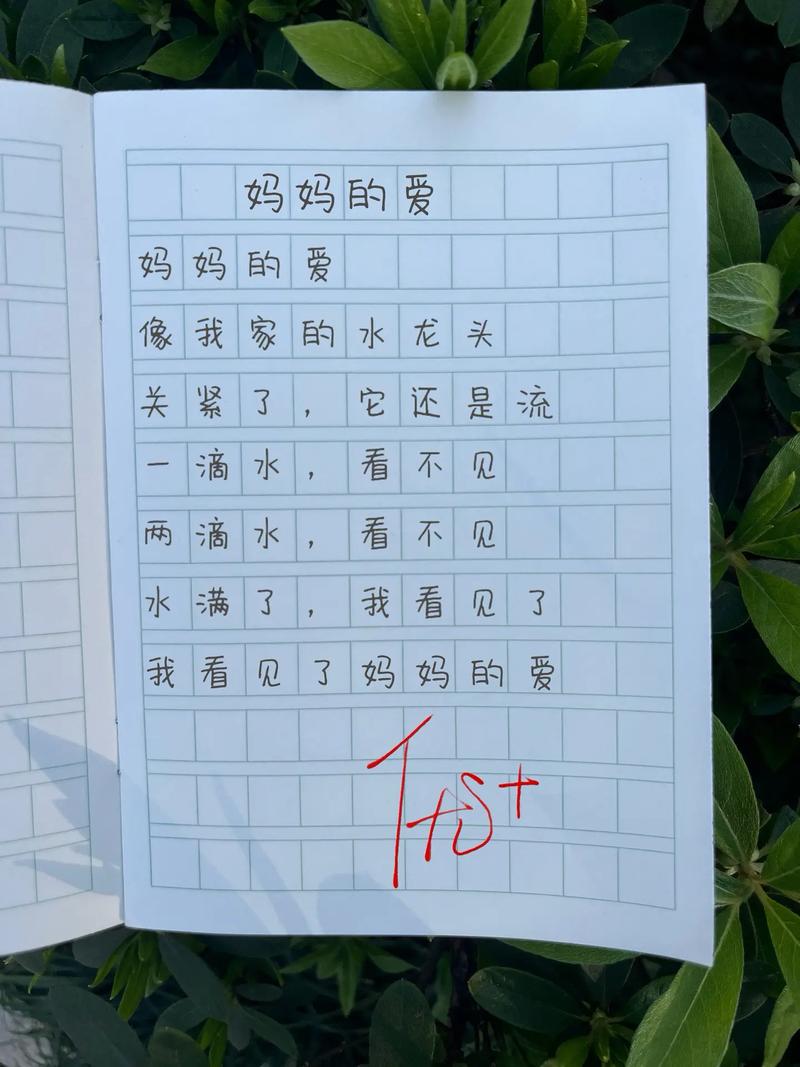 妈妈的爱
妈妈的爱
像我家的水龙头
关紧了，它还是流
一滴水，看不见
两滴水，看不见
水满了，我看见了
我看见了妈妈的爱